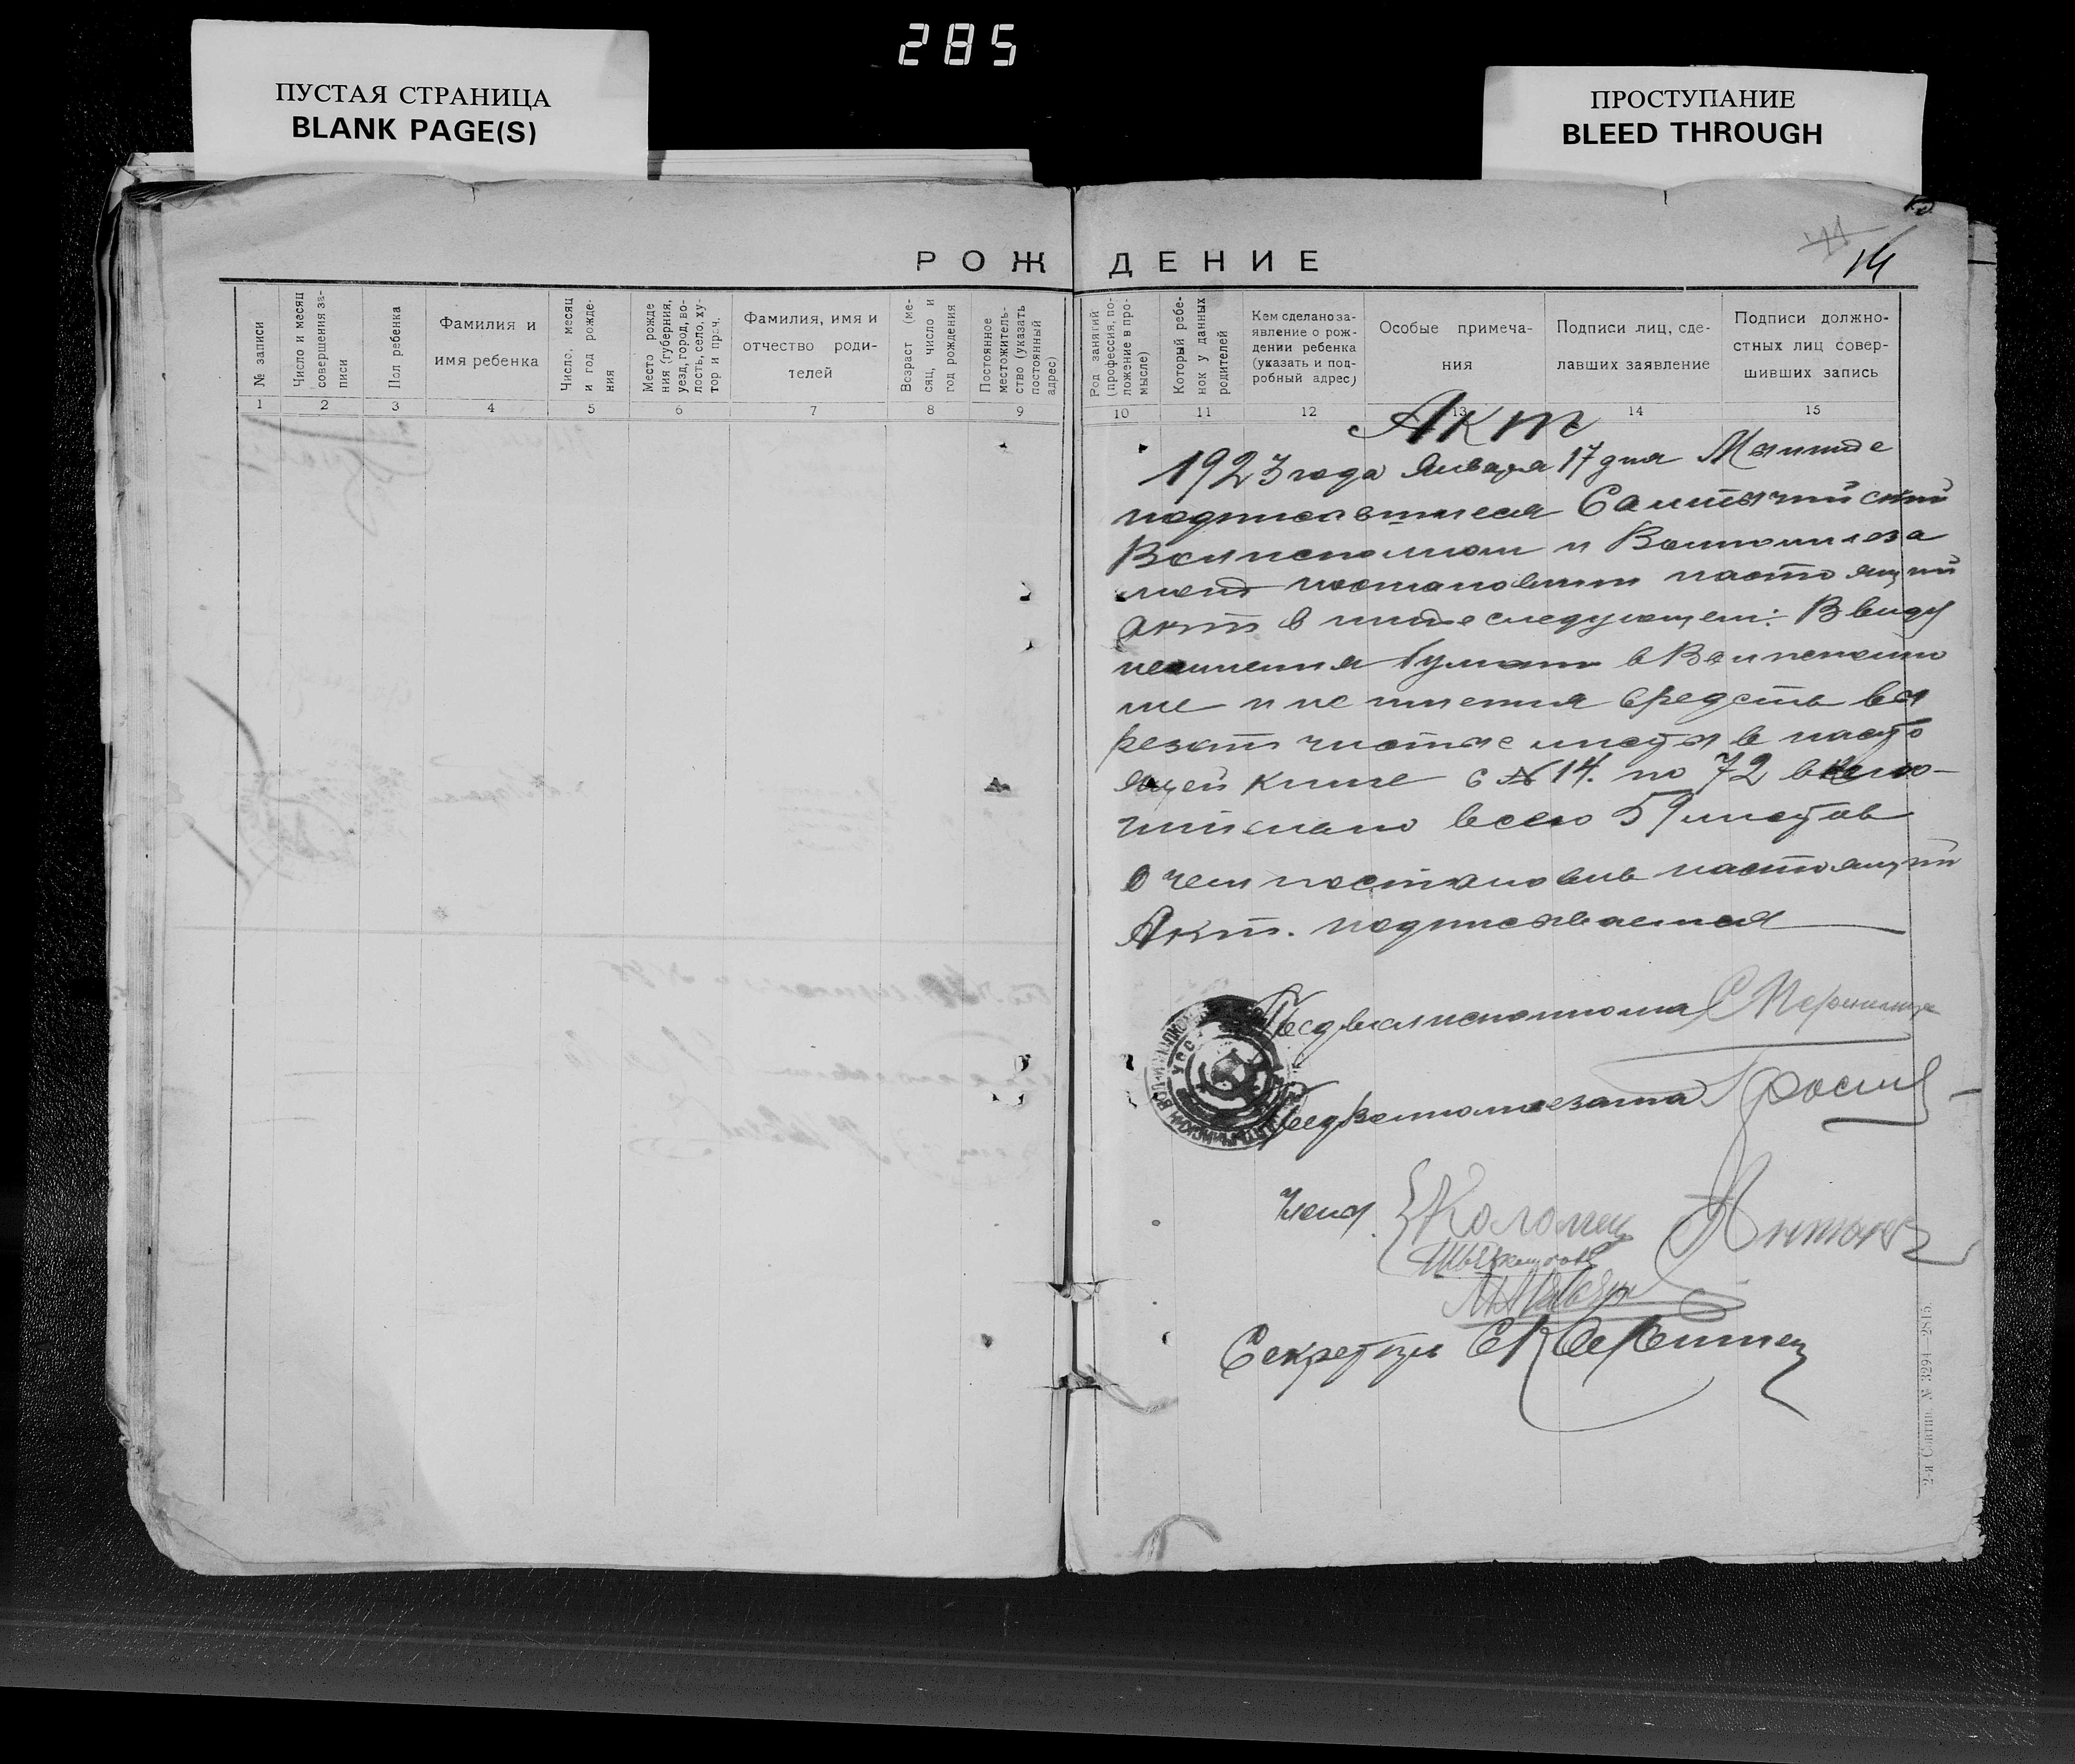 285
ПУСТАЯ СТРАНИЦА
BLANK PAGE(S)
ПРОСТУПАНИЕ
BLEED THROUGH
14
РОЖДЕНИЕ
№ записи
Число и месяц совершения записи
Пол ребенка
Фамилия и
имя ребенка
Число, месяц
и год рожде-
ния
Место рожде
ния (губерния,
уезд, город, во-
лость, село, ху-
тор и проч.
Фамилия, имя и
отчество роди-
телей
Возраст (ме-
сяц, число и
год рождения
Постоянное
местожитель-
ство (указать
постоянный
адрес)
Род занятий
(профессия, по-
ложение в про-
мысле)
Который ребе-
нок у данных
родителей
Кем сделано за-
явление о рож-
дении ребенка
(указать и под-
робный адрес)
Особые примеча-
ния
Подписи лиц, сде-
лавших заявление
Подписи должно-
стных лиц совер-
шивших запись
1 2 3 4 5 6 7 8 9 10 11 12 13 14 15
Акт
1923 года Января 17 дня Мы ниже
подписавшиеся
Волисполком и
постановили настоящий
акт в нижеследующем: Ввиду
неимения бумаги в Волисполко
ме и не имения средств вы
резать чистые листы в насто
ящей книге с № 14. по 72 вклю-
чительно всего 59 листов
О чем постановив настоящий
Акт. подписывается
Предволисполкома
Члены Коломец
Секретарь
2-я С.тип. № 3294—2815.